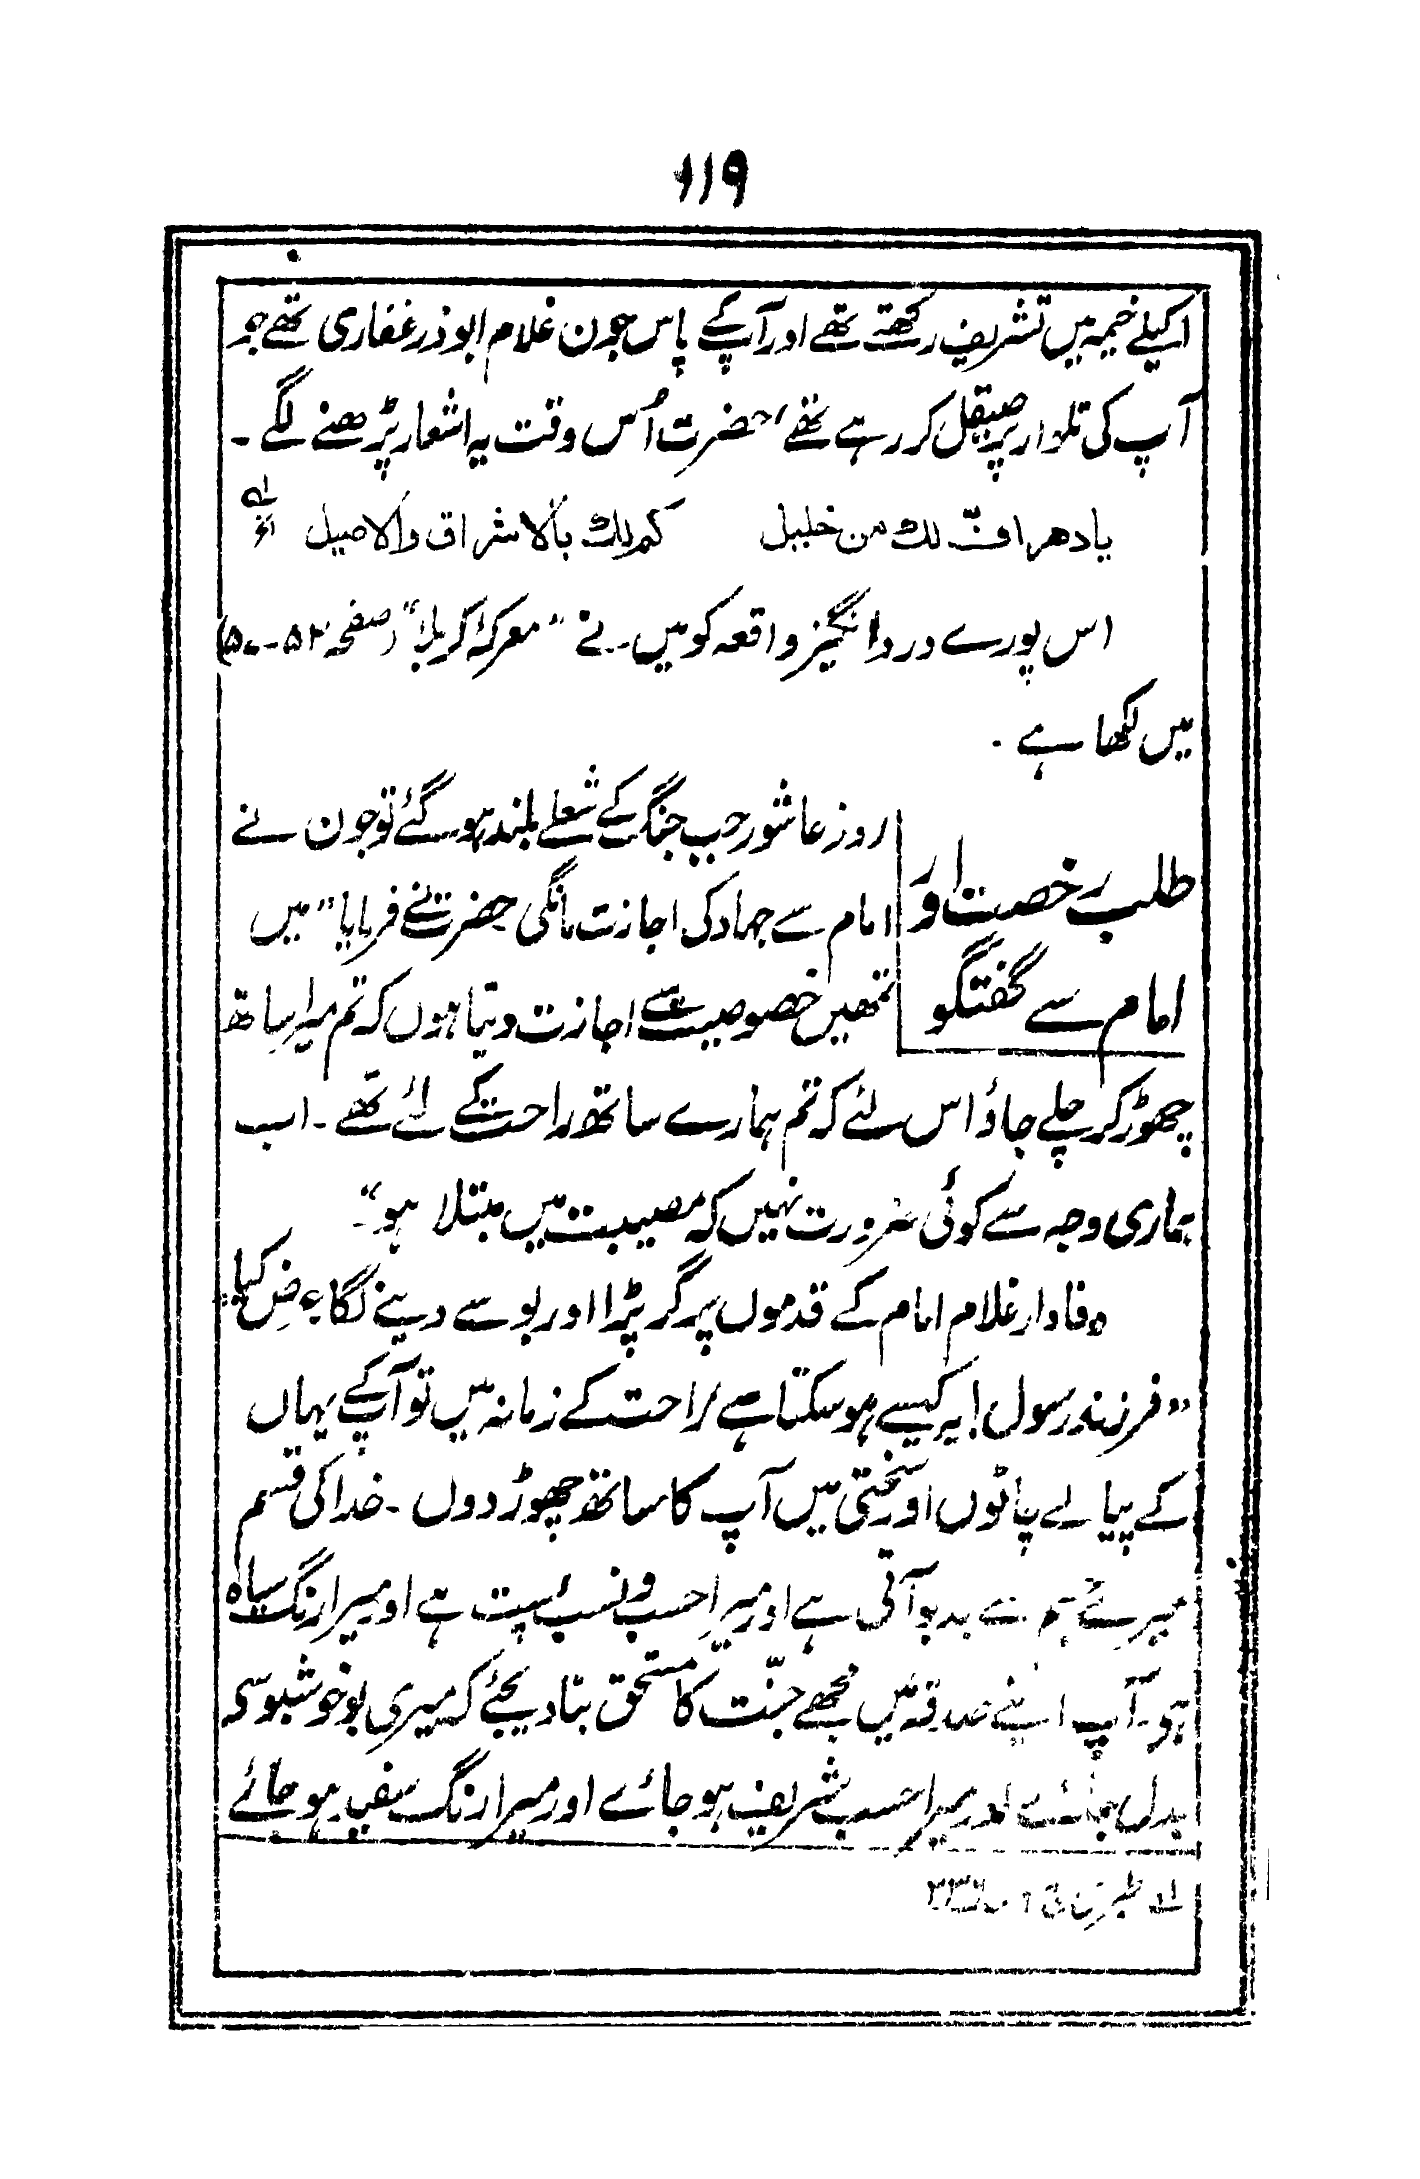 ۱۱۹
اکیلے خیمہ میں تشریف رکھتے تھے اور آپ کے پاس جون غلام ابوذر غفاری تھے جو
آپ کی تلوار پر صیقل کر رہے تھے، حضرت اُس وقت یہ اشعار پڑھنے لگے۔
یا دھر افّ لک من خلیل کم لک بالاشراق والاصیل الخ لہ
اس پورے درد انگیز واقعہ کو میں نے "معرکۂ کربلا" (صفحہ ۵۲-۵۰)
میں لکھا ہے۔
طلب رخصت اور
امام سے گفتگو
روز عاشور جب جنگ کے شعلے بلند ہو گئے تو جون نے
امام سے جہاد کی اجازت مانگی حضرت نے فرمایا "میں
تمھیں خصوصیت سے اجازت دیتا ہوں کہ تم میرا ساتھ
چھوڑ کر چلے جاؤ اس لئے کہ تم ہمارے ساتھ راحت کے لئے تھے۔ اب
ہماری وجہ سے کوئی ضرورت نہیں کہ مصیبت میں مبتلا ہو"۔
وفادار غلام امام کے قدموں پر گر پڑا اور بوسے دینے لگا، عرض کیا:
"فرزند رسول! یہ کیسے ہو سکتا ہے راحت کے زمانہ میں تو آپ کے یہاں
کے پیالے چاٹوں اور سختی میں آپ کا ساتھ چھوڑ دوں۔ خدا کی قسم
میرے جسم سے بدبو آتی ہے اور میرا حسب و نسب پست ہے اور میرا رنگ سیاہ
ہو۔ آپ اپنے صدقہ میں مجھے جنّت کا مستحق بنا دیجئے کہ میری بو خوشبو سے
بدل جائے اور میرا حسب شریف ہو جائے اور میرا رنگ سفید ہو جائے
لہ طبری ج ۶